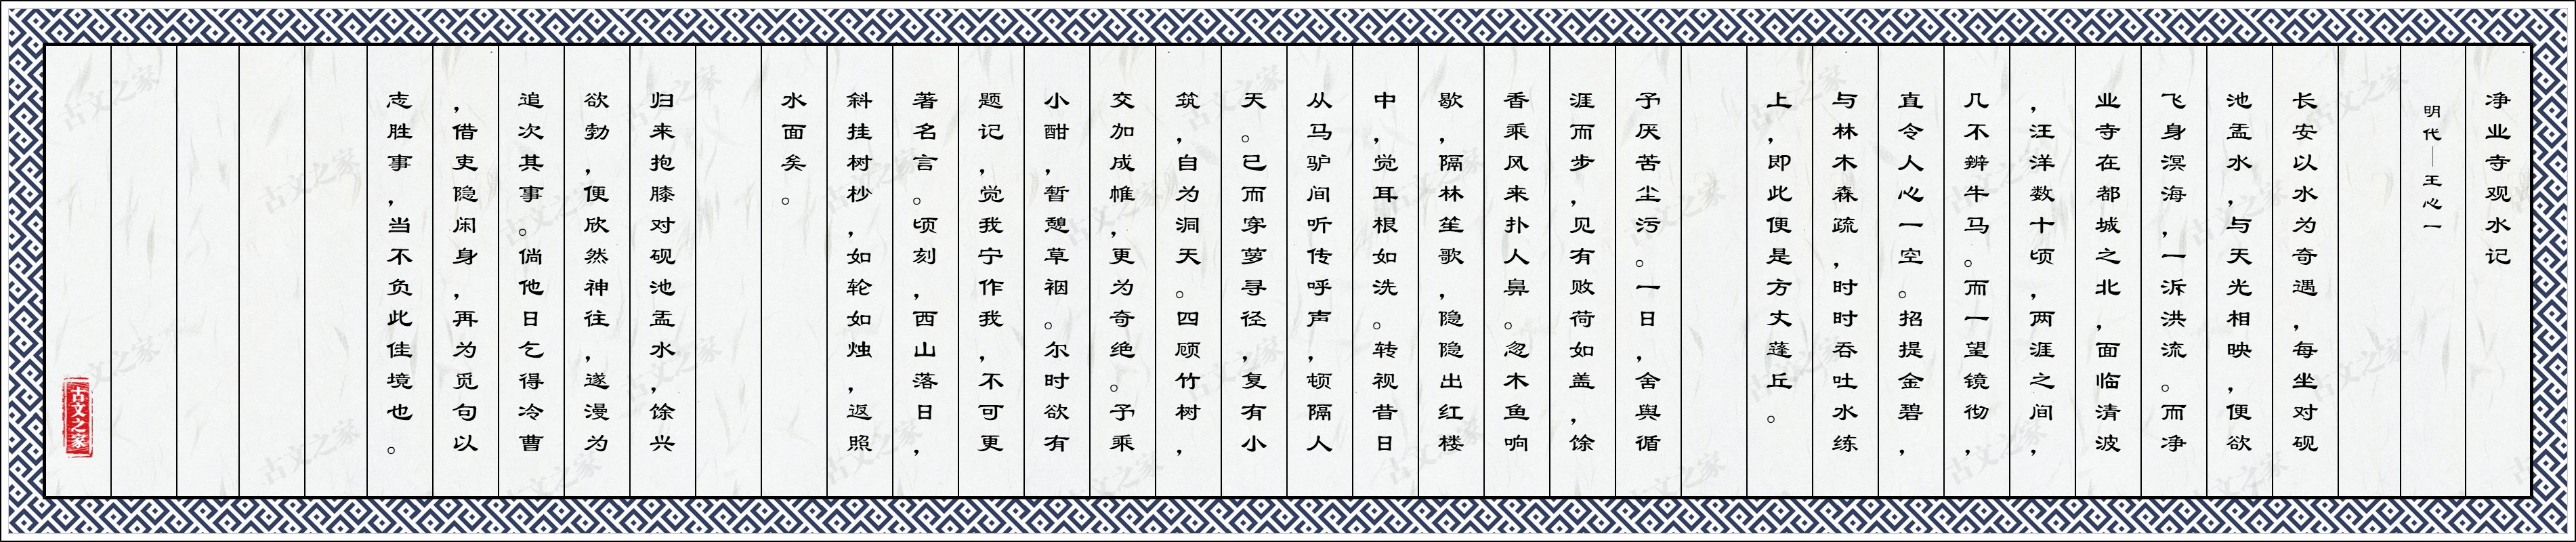 净业寺观水记
明代｜王心一
长安以水为奇遇，每坐对砚
池盂水，与天光相映，便欲
飞身溟海，一泝洪流。而净
业寺在都城之北，面临清波
，汪洋数十顷，两涯之间，
几不辨牛马。而一望镜彻，
直令人心一空。招提金碧，
与林木森疏，时时吞吐水练
上，即此便是方丈蓬丘。
予厌苦尘污。一日，舍舆循
涯而步，见有败荷如盖，馀
香乘风来扑人鼻。忽木鱼响
歇，隔林笙歌，隐隐出红楼
中，觉耳根如洗。转视昔日
从马驴间听传呼声，顿隔人
天。已而穿萝寻径，复有小
筑，自为洞天。四顾竹树，
交加成帷，更为奇绝。予乘
小酣，暂憩草裀。尔时欲有
题记，觉我宁作我，不可更
著名言。顷刻，西山落日，
斜挂树杪，如轮如烛，返照
水面矣。
归来抱膝对砚池盂水，馀兴
欲勃，便欣然神往，遂漫为
追次其事。倘他日乞得冷曹
，借吏隐闲身，再为觅句以
志胜事，当不负此佳境也。
古文之家